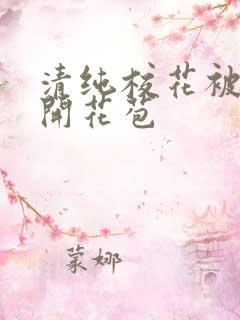 清纯校花被
開花苞
蒙娜